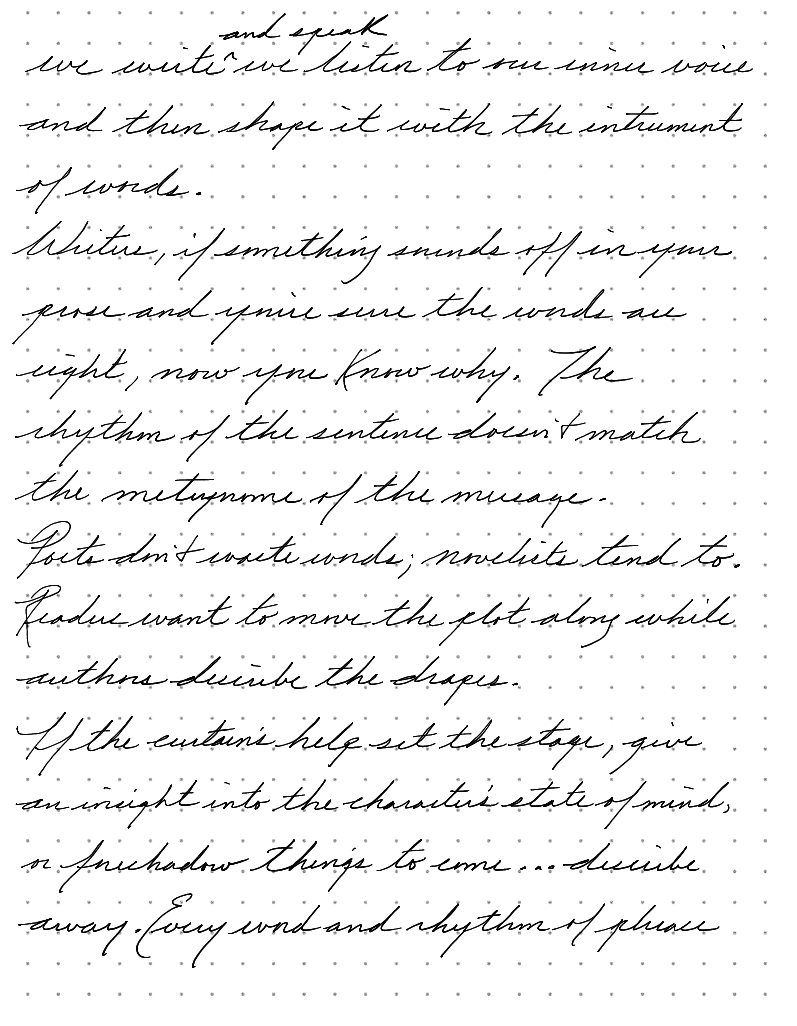 and speak
we write ^ we listen to our inner voice
and then shape it with the intrument
of words.
Writers, if something sounds off in your
prose and you're sure the words are
right, now you know why. The
rhythm of the sentence doesn't match
the metrynome of the message.
Poets don't waste words; novelists tend to.
Readers want to move the plot along while
authors describe the drapes.
If the curtain's help set the stage, give
an insight into the character's state of mind,
or foreshadow things to come... describe
away. Every word and rhythm of phrase